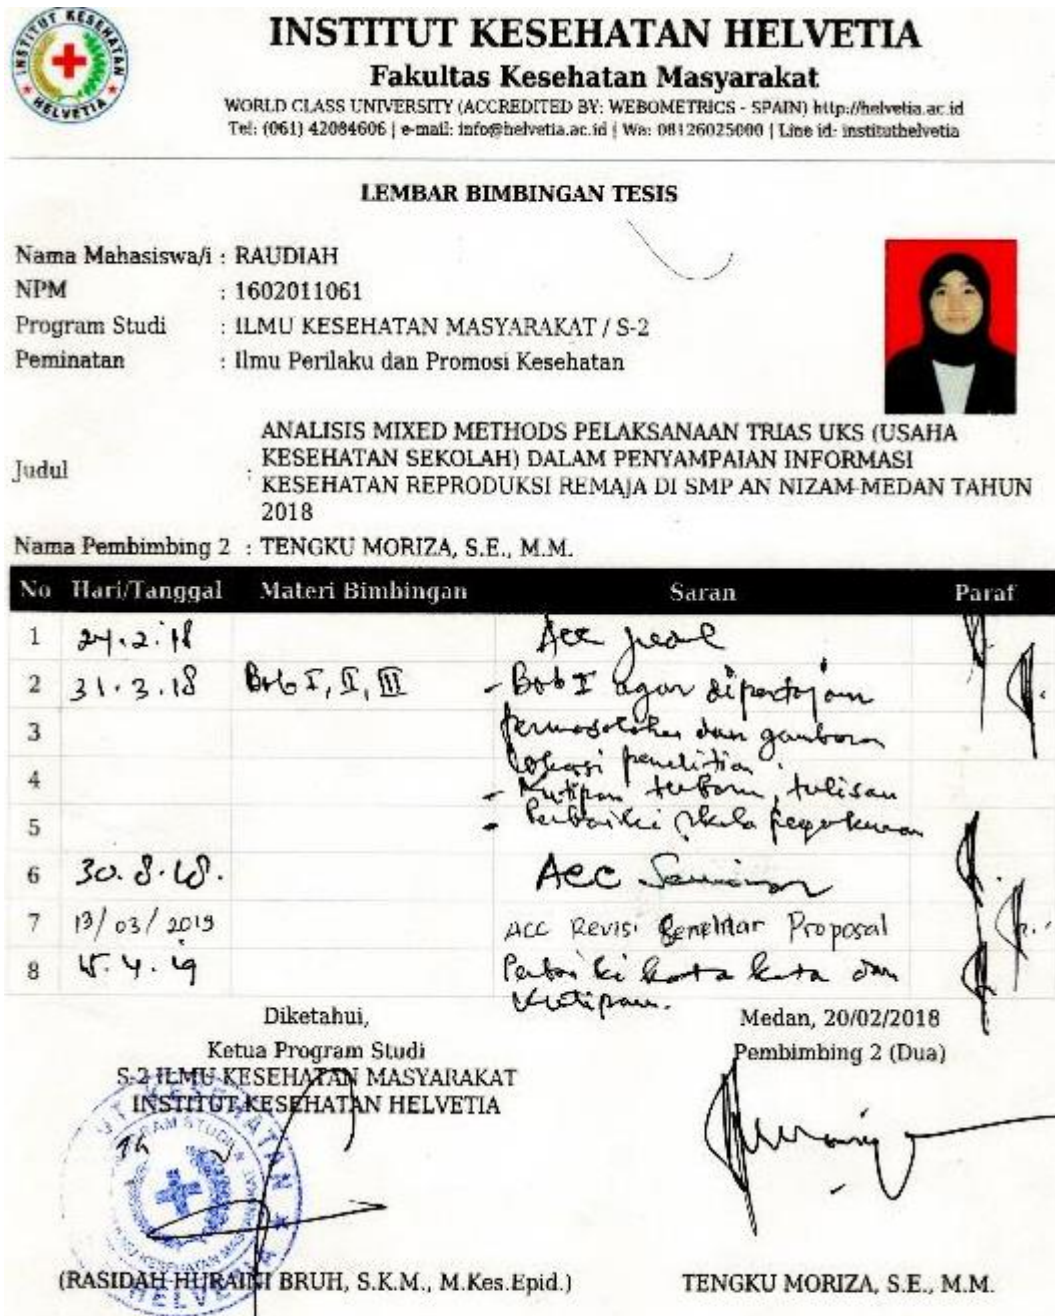 INSTITUT KESEHATAN HELVETIA
INSTITUT KESEHATAN HELVETIA
Fakultas Kesehatan Masyarakat
WORLD CLASS UNIVERSITY (ACCREDITED BY: WEBOMETRICS - SPAIN) http://helvetia.ac.id
Tel: (061) 42084606 | e-mail: info@helvetia.ac.id | Wa: 08126025000 | Line id: instituthelvetia
LEMBAR BIMBINGAN TESIS
Nama Mahasiswa/i : RAUDIAH
NPM : 1602011061
Program Studi : ILMU KESEHATAN MASYARAKAT / S-2
Peminatan : Ilmu Perilaku dan Promosi Kesehatan
Judul : ANALISIS MIXED METHODS PELAKSANAAN TRIAS UKS (USAHA
KESEHATAN SEKOLAH) DALAM PENYAMPAIAN INFORMASI
KESEHATAN REPRODUKSI REMAJA DI SMP AN NIZAM MEDAN TAHUN
2018
Nama Pembimbing 2 : TENGKU MORIZA, S.E., M.M.
No Hari/Tanggal Materi Bimbingan Saran Paraf
1 24.2.18 Acc judul
2 31.3.18 Bab I, II, III - Bab I agar dipertajam
3 permasalahan dan gambaran
lokasi penelitian.
4 - Kutipan terbaru, tulisan
5 - Perbaiki skala pengukuran
6 30.8.18. Acc Seminar
7 13/03/2019 ACC Revisi Proposal
8 15.4.19 Perbaiki kata kata dan
kutipan.
Diketahui,
Ketua Program Studi
S-2 ILMU KESEHATAN MASYARAKAT
INSTITUT KESEHATAN HELVETIA
(RASIDAH HURAINI BRUH, S.K.M., M.Kes.Epid.)
Medan, 20/02/2018
Pembimbing 2 (Dua)
TENGKU MORIZA, S.E., M.M.